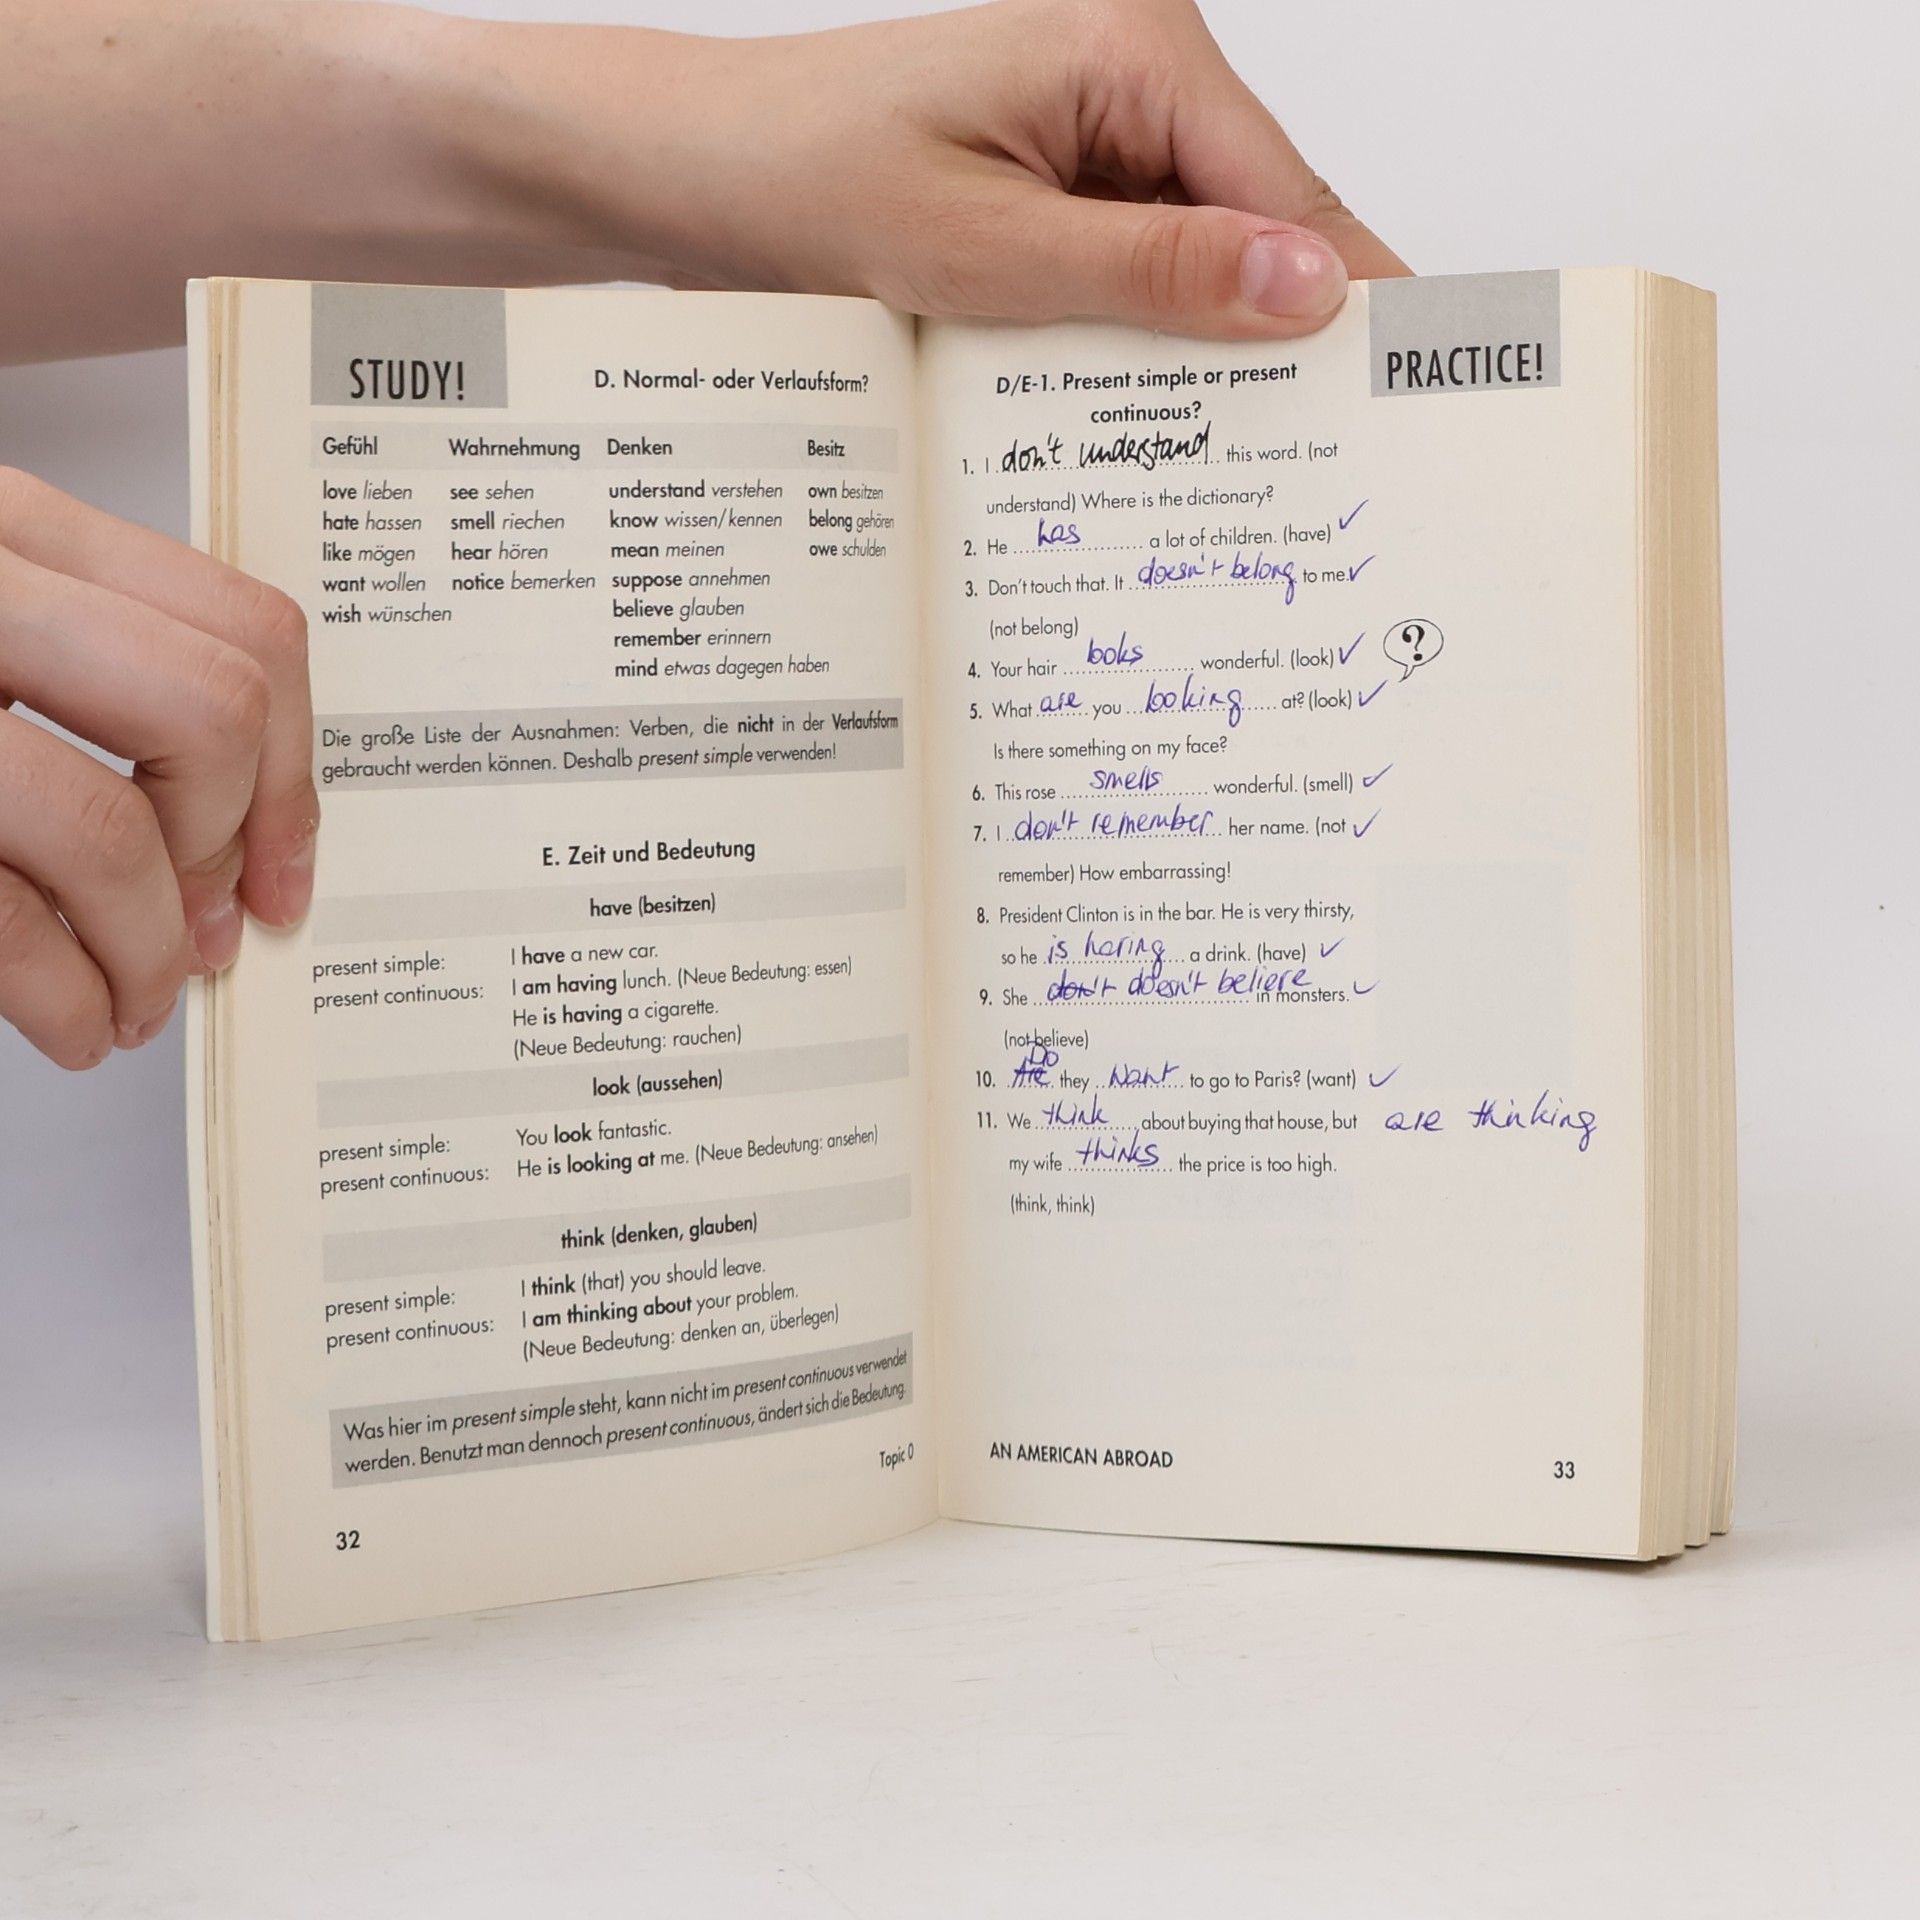 STUDY!
D. Normal- oder Verlaufsform?
Gefühl Wahrnehmung Denken Besitz
love lieben see sehen understand verstehen own besitzen
hate hassen smell riechen know wissen/kennen belong gehören
like mögen hear hören mean meinen owe schulden
want wollen notice bemerken suppose annehmen
wish wünschen believe glauben
remember erinnern
mind etwas dagegen haben
Die große Liste der Ausnahmen: Verben, die nicht in der Verlaufsform
gebraucht werden können. Deshalb present simple verwenden!
E. Zeit und Bedeutung
have (besitzen)
present simple: I have a new car.
present continuous: I am having lunch. (Neue Bedeutung: essen)
He is having a cigarette.
(Neue Bedeutung: rauchen)
look (aussehen)
present simple: You look fantastic.
present continuous: He is looking at me. (Neue Bedeutung: ansehen)
think (denken, glauben)
present simple: I think (that) you should leave.
present continuous: I am thinking about your problem.
(Neue Bedeutung: denken an, überlegen)
Was hier im present simple steht, kann nicht im present continuous verwendet
werden. Benutzt man dennoch present continuous, ändert sich die Bedeutung.
Topic 0
32
PRACTICE!
D/E-1. Present simple or present
continuous?
1. I don't understand this word. (not
understand) Where is the dictionary?
2. He has a lot of children. (have)
3. Don't touch that. It doesn't belong to me.
(not belong)
4. Your hair looks wonderful. (look)
?
5. What are you looking at? (look)
Is there something on my face?
6. This rose smells wonderful. (smell)
7. I don't remember her name. (not
remember) How embarrassing!
8. President Clinton is in the bar. He is very thirsty,
so he is having a drink. (have)
9. She don't doesn't believe in monsters.
(not believe)
Do
10. Are they want to go to Paris? (want)
11. We think about buying that house, but are thinking
my wife thinks the price is too high.
(think, think)
AN AMERICAN ABROAD
33